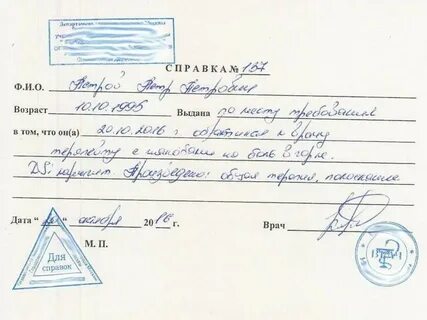 Департамент
СПРАВКА № 137
Ф.И.О. Петров Петр Петрович
Возраст 10.10.1995 Выдана по месту требования
в том, что он(а) 20.10.2016 г. обратился к врачу
терапевту с жалобами на боль в горле.
DS: ларингит. Произведено: общая терапия, полоскание.
Дата " " октября 2016 Врач
М. П.
Для
справок
ВРАЧ